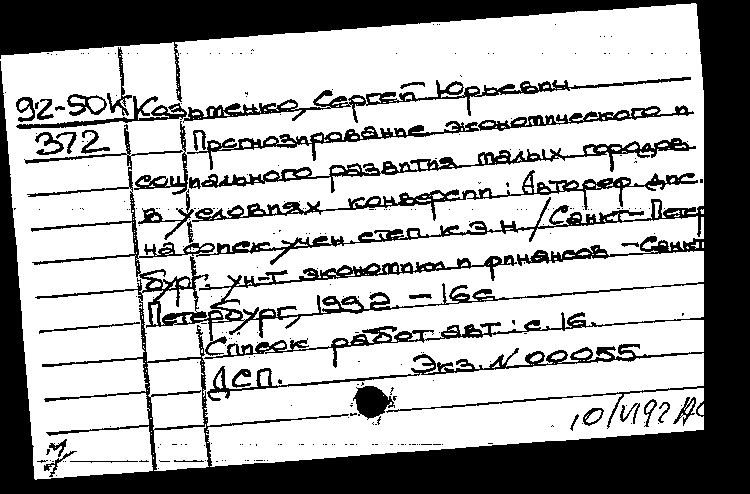 92-50К Козьменко, Сергей Юрьевич.
372 Прогнозирование экономического и
социального развития малых городов
в условиях конверсии : Автореф. дис.
на соиск. учен. степ. к.э.н. / Санкт-Петер
бург. ун-т экономики и финансов - Санкт
Петербург, 1992. - 16с.
Список работ авт.: с. 16.
ДСП. Экз. N 00055.
10/VI92